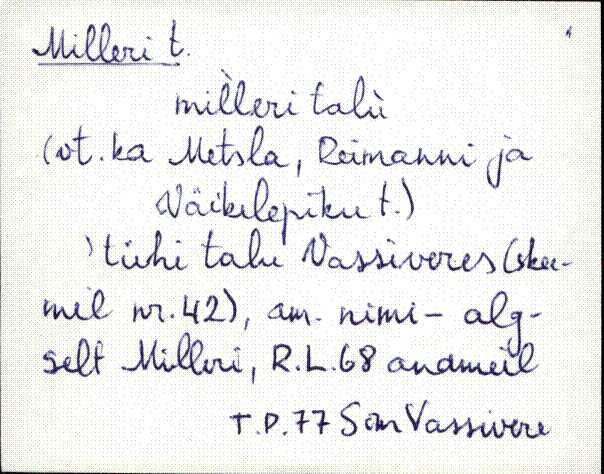 Milleri t.
mìlleri talù
(vt. ka Metsla, Reimanni ja
Väikelepiku t.)
tühi talu Vassiveres (skee-
mil nr. 42), am. nimi - alg-
selt Milleri, R.L.68 andmeil
T.P.77 Sim Vassivere